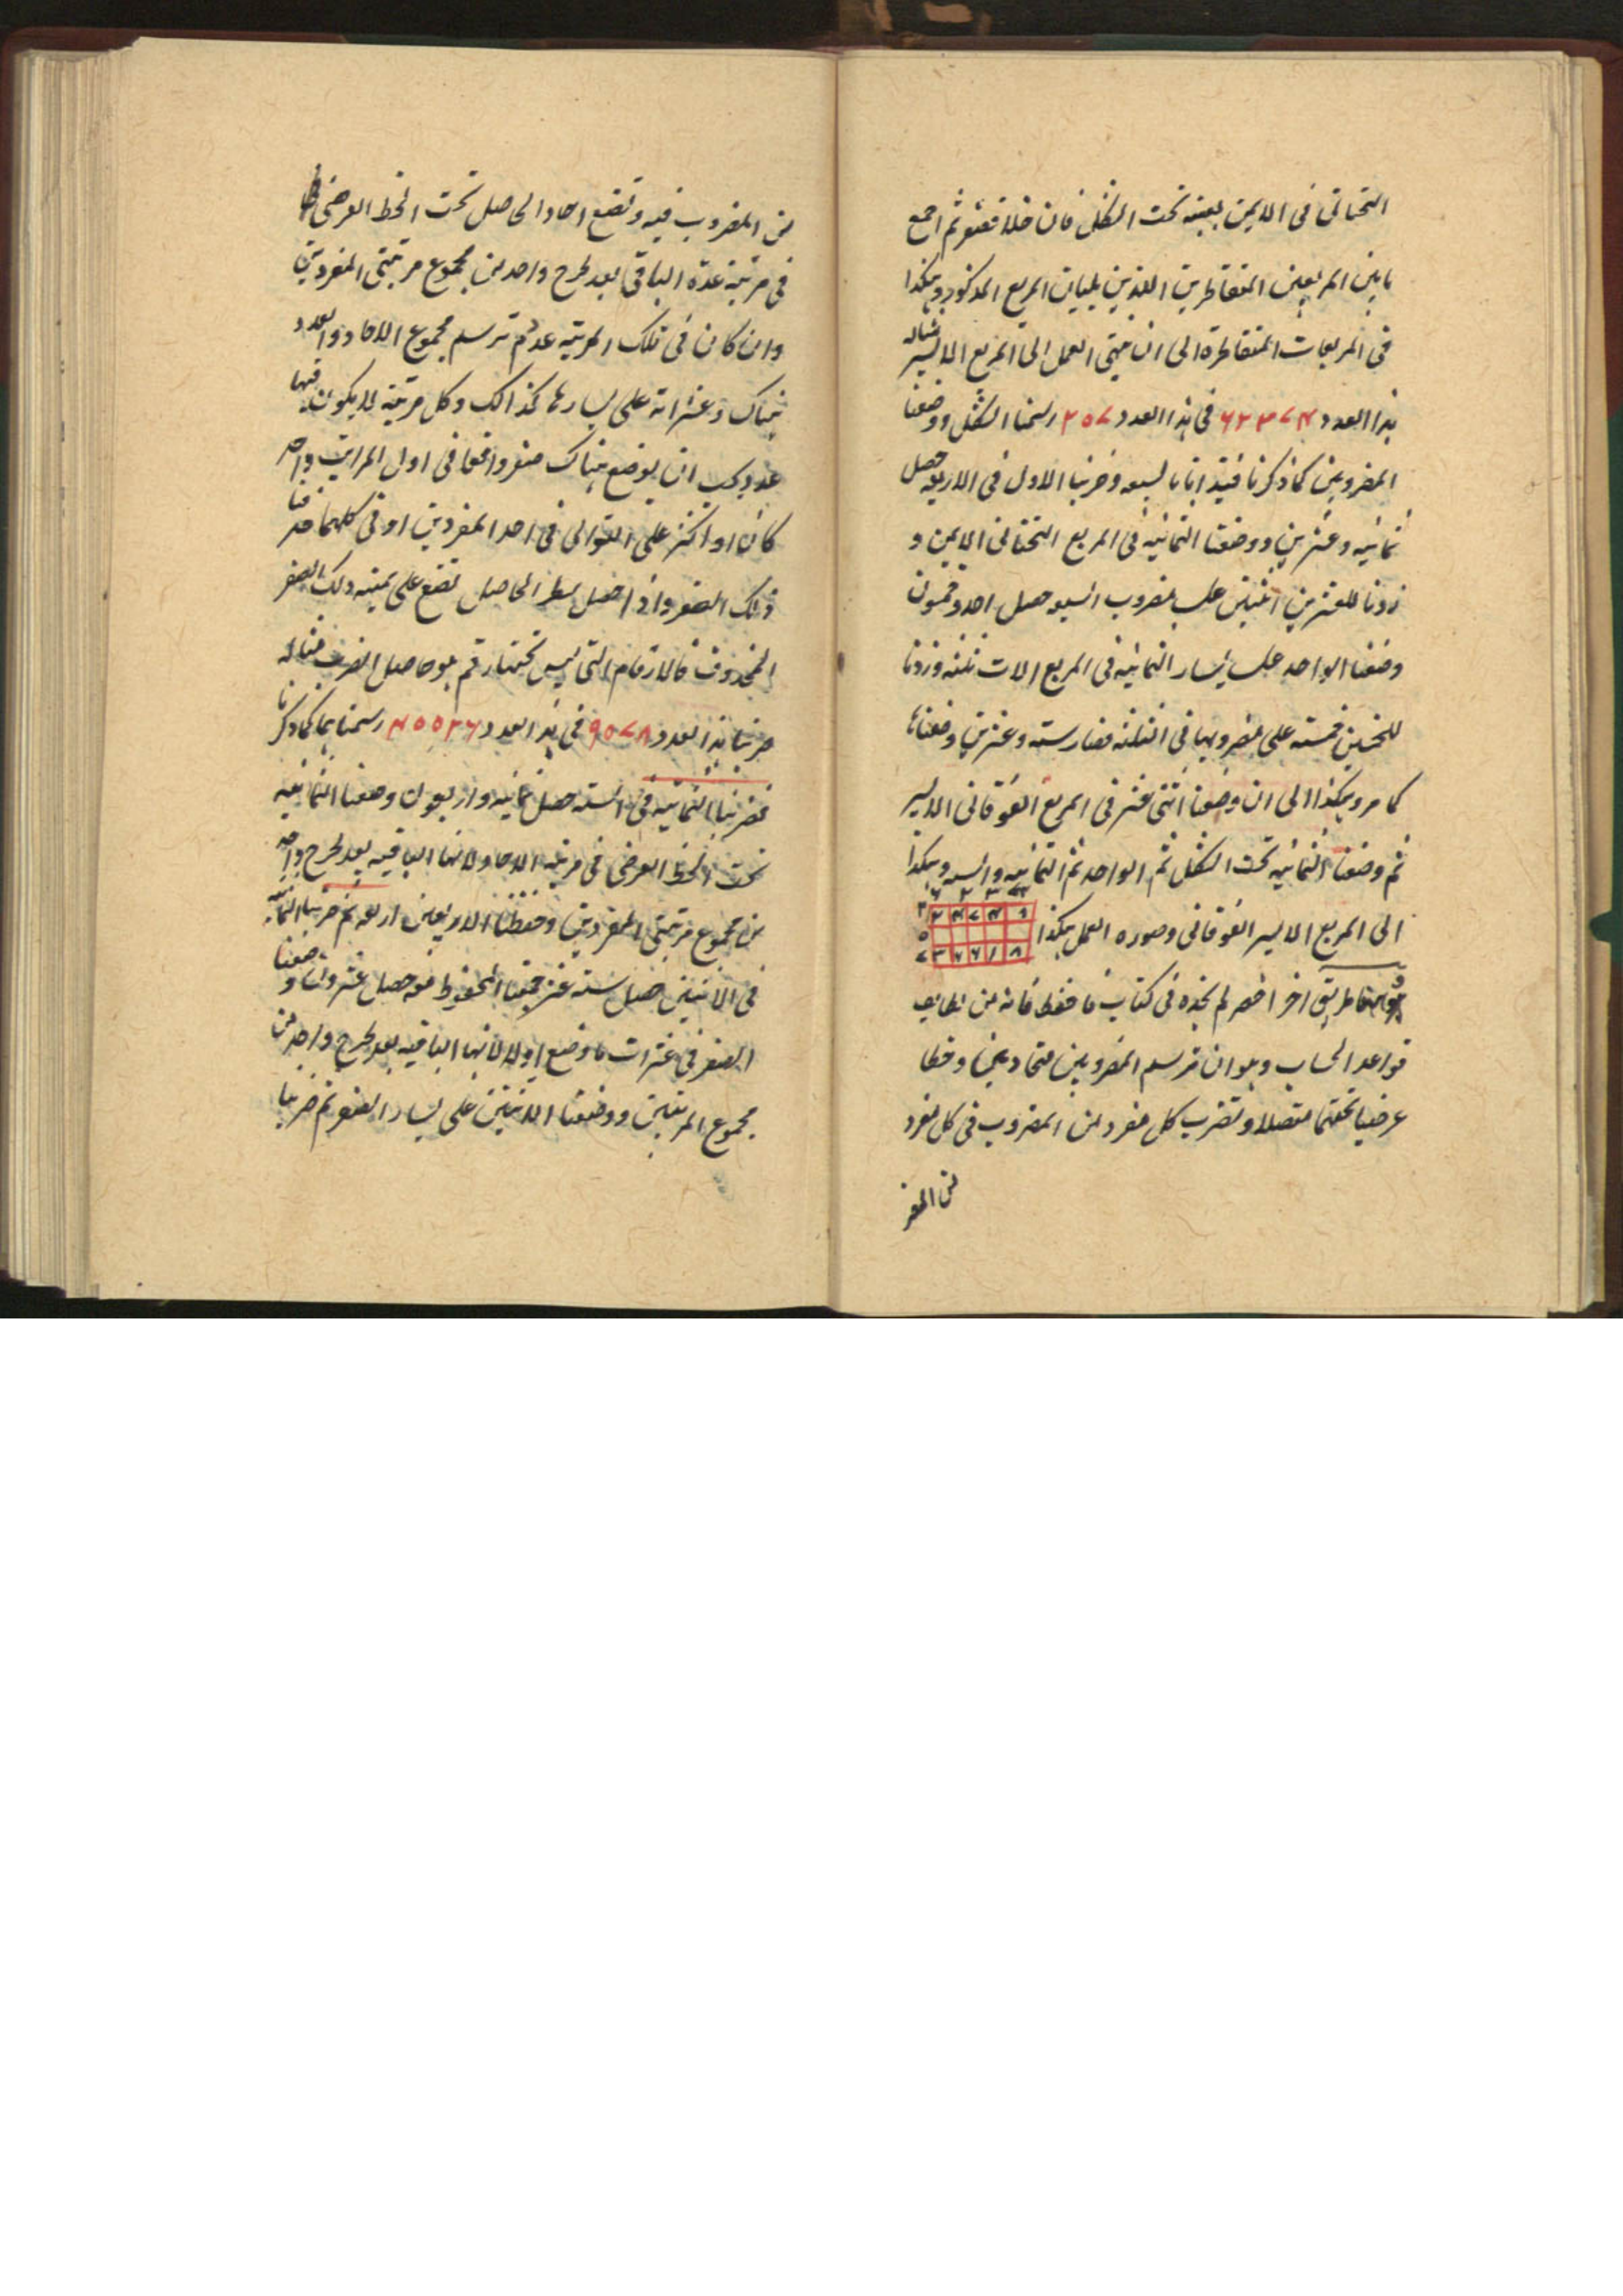 التحتانى فى الايمن بعينه تحت الشكل فان خلا فصفر ثم اجمع
ما بين المربعين المتقاطرين اللذين يليان المربع المذكور وهكذا
فى المربعات المتقاطرة الى ان ينتهى العمل الى المربع الايسر مثاله
هذا العدد ۶۲۳۷۴ فى هذا العدد ۲۵۷ رسمنا الشكل ووضعنا
المضروبين كما ذكرنا فيه ابتدانا بالسبعه وضربنا الاول فى الاربعه حصل
ثمانيه وعشرين ووضعنا الثمانيه فى المربع التحتانى الايمن و
زدنا للعشرين اثنين على مضروب السبع حصل احد وخمسون
وضعنا الواحد على يسار الثمانيه فى المربع الات ثلثه وزدنا
للخمسين خمسته على مضروبها فى الثلثه فصار سته وعشرين وضعناها
كما مر وهكذا الى ان وضعنا اثنى عشر فى المربع الفوقانى الايسر
ثم وضعنا الثمانيه تحت الشكل ثم الواحد ثم الثمانيه وهكذا
الى المربع الايسر الفوقانى وصوره العمل هكذا
طريق اخر اخصر لم نجده فى كتاب فاحفظ فانه من لطايف
قواعد الحساب وهو ان ترسم المضروبين متحاذيين وخطا
عرضيا تحتهما متصلا وتضرب كل مفرد من المضروب فى كل مفرد
من المضر
من المضروب فيه وتضع احاد الحاصل تحت الخط العرضى
فى مرتبة عدة الباقى بعد طرح واحد من مجموع مرتبتى المفردين
وان كان فى تلك المرتبه عدد ثم ترسم مجموع الاحاد والعدد
هناك وعشراته على يسارها كذالك وكل مرتبه لا يكون فيها
عدد يجب ان يوضع هناك صفر واقعا فى اول المراتب واحد
كان او اكثر على التوالى فى احد المفردين او فى كلهما حذفنا
ذلك الصفر واذا حصل سطر الحاصل تضع على يمينه ذلك الصفر
المحذوف فالارقام التى ليس تحتها رقم هو حاصل الضرب مثاله
ضربنا هذا العدد ۹۵۷۸ فى هذا العدد ۴۵۵۲۶ رسمناهما كما ذكرنا
فضربنا الثمانيه فى السته حصل ثمانيه واربعون وضعنا الثمانيه
تحت الخط العرضى فى مرتبه الاحاد لانها الباقيه بعد طرح واحد
من مجموع مرتبتى المفردين وحفظنا للاربعين اربعه ثم ضربنا الثمانيه
فى الاثنين حصل سته عشر جمعنا المحفوظ معه حصل عشرون وضعنا
الصفر فى عشرات ما وضع اولا لانها الباقيه بعد طرح واحد من
مجموع المرتبتين ووضعنا الاثنين على يسار الصفر ثم ضربنا